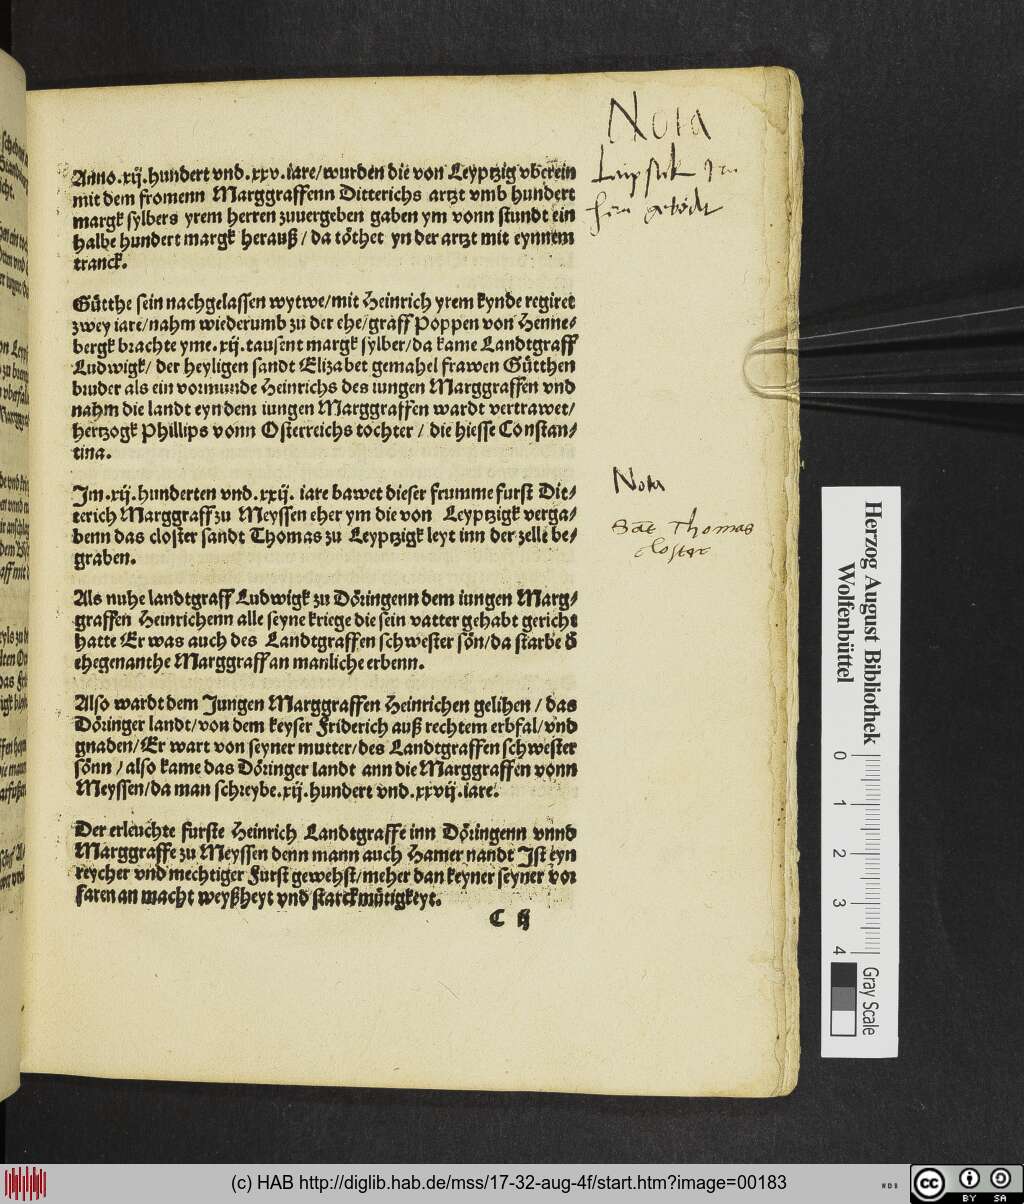 Anno.xij.hundert vnd.xxv.iare/wurden die von Leyptzig vberein
mit dem fromenn Marggraffenn Ditterichs artzt vmb hundert
margk sylbers yrem herren zuuergeben gaben ym vonn stundt ein
halbe hundert margk herauß/da tõthet yn der artzt mit eynnem
tranck.
Gütthe sein nachgelassen wytwe/mit Heinrich yrem kynde regiret
zwey iare/nahm wiederumb zu der ehe/graff Poppen von Henne-
bergk brachte yme.xij.tausent margk sylber/da kame Landtgraff
Ludwigk/der heyligen sandt Elizabet gemahel frawen Gütthen
bruder als ein vormunde Heinrichs des iungen Marggraffen vnd
nahm die landt eyn dem iungen Marggraffen wardt vertrawet/
hertzogk Phillips vonn Osterreichs tochter/die hiesse Constan-
tina.
Im.xij.hunderten vnd.xxij.iare bawet dieser frumme furst Dit-
terich Marggraff zu Meyssen eher ym die von Leyptzigk verga-
benn das closter sandt Thomas zu Leyptzigk leyt inn der zelle be-
graben.
Als nuhe landtgraff Ludwigk zu Döringenn dem iungen Marg-
graffen Heinrichenn alle seyne kriege die sein vatter gehabt gericht
hatte Er was auch des Landtgraffen schwester sön/da starbe d
ehegenanthe Marggraff an manliche erbenn.
Also wardt dem Jungen Marggraffen Heinrichen gelihen/das
Döringer landt/von dem keyser Friderich auß rechtem erbfal/vnd
gnaden/Er wart von seyner mutter/des Landtgraffen schwester
sönn/also kame das Döringer landt ann die Marggraffen vonn
Meyssen/da man schreybe.xij.hundert vnd.xxvij.iare.
Der erleuchte furste Heinrich Landtgraffe inn Döringenn vnnd
Marggraffe zu Meyssen denn mann auch Hamer nandt Ist eyn
reycher vnd mechtiger Furst gewehst/meher dan keyner seyner vor
faren an macht weyßheyt vnd starckmütigkeyt.
C ij
Nota
Nota
Sāt Thomas
closter
Herzog August Bibliothek
Wolfenbüttel
0 1 2 3 4
Gray Scale
(c) HAB http://diglib.hab.de/mss/17-32-aug-4f/start.htm?image=00183
cc BY SA